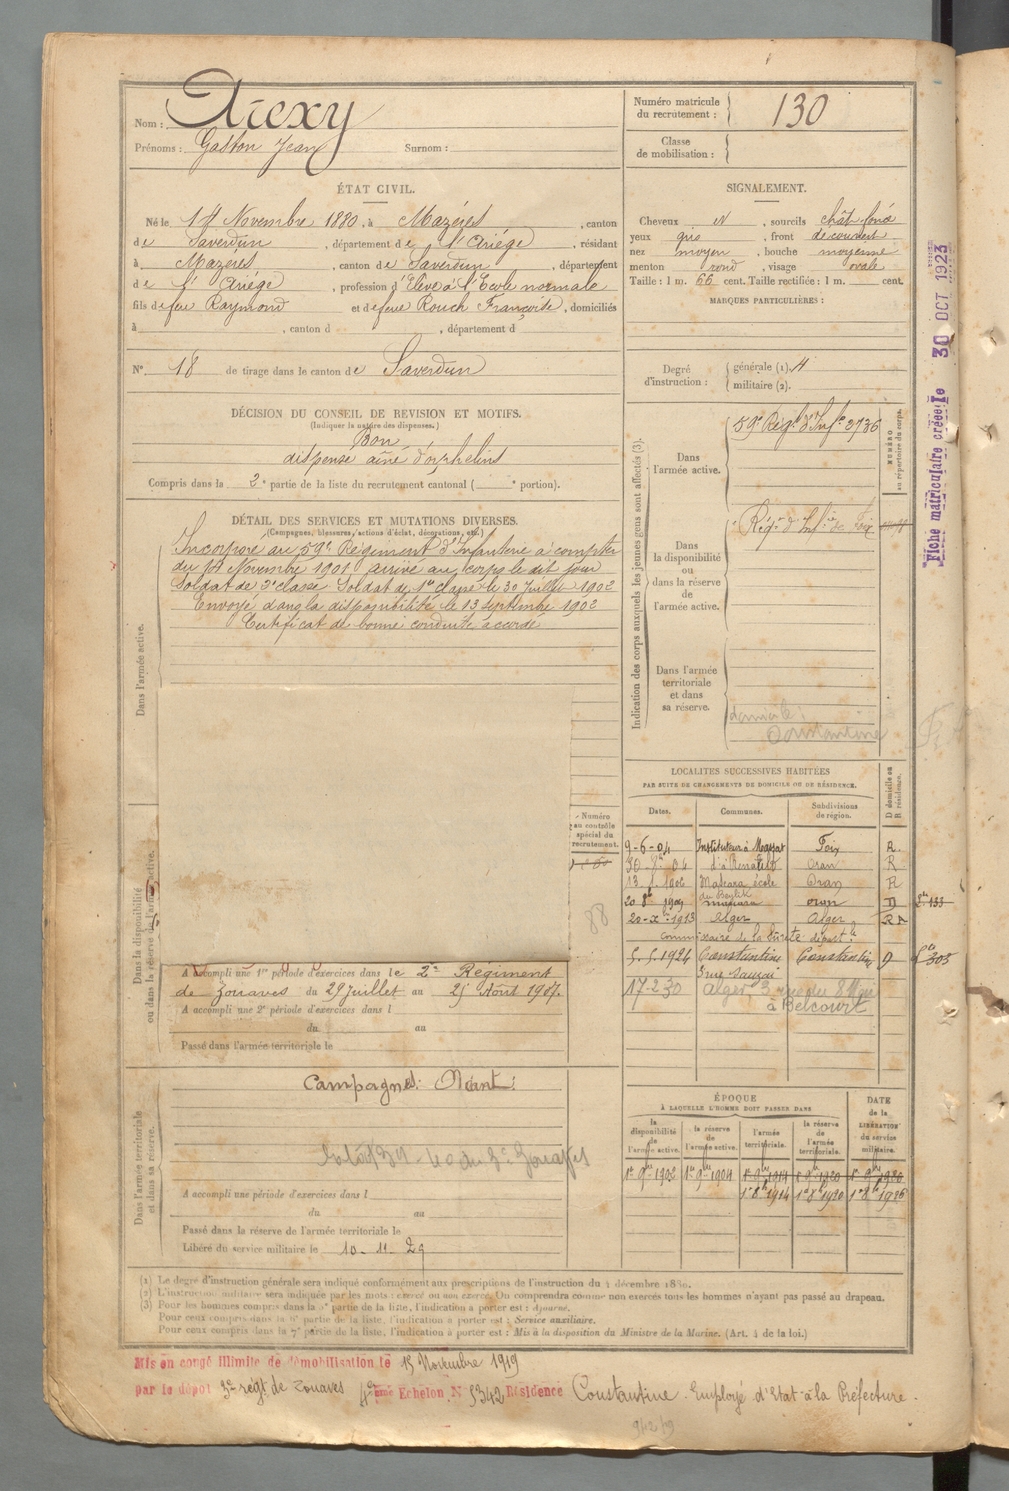 Nom : Arexy
Prénoms : Gaston Jean Surnom :
Numéro matricule du recrutement : 130
Classe de mobilisation :
ÉTAT CIVIL.
Né le 1er Novembre 1880, à Mazères, canton
de Saverdun, département de l'Ariège, résidant
à Mazères, canton de Saverdun, département
de l'Ariège, profession d'Elève à l'Ecole normale
fils de feu Raymond et de feue Rouch Françoise, domiciliés
à , canton d , département d
N° 18 de tirage dans le canton de Saverdun
SIGNALEMENT.
Cheveux N, sourcils chât foncé
yeux gris, front découvert
nez moyen, bouche moyenne
menton rond, visage ovale
Taille : 1 m. 66 cent. Taille rectifiée : 1 m. cent.
MARQUES PARTICULIÈRES :
Degré d'instruction : générale (1). 4
militaire (2).
DÉCISION DU CONSEIL DE REVISION ET MOTIFS.
(Indiquer la nature des dispenses.)
Bon
dispensé aîné d'orphelins
Compris dans la 2e partie de la liste du recrutement cantonal ( e portion).
DÉTAIL DES SERVICES ET MUTATIONS DIVERSES.
(Campagnes, blessures, actions d'éclat, décorations, etc.)
Dans l'armée active.
Incorporé au 59e Régiment d'Infanterie à compter
du 14 Novembre 1901 arrivé au corps le dit jour
Soldat de 2e classe Soldat de 1re classe le 30 Juillet 1902
Envoyé dans la disponibilité le 13 septembre 1902
Certificat de bonne conduite accordé
Indication des corps auxquels les jeunes gens sont affectés (3).
NUMÉRO au répertoire du corps.
Dans l'armée active.
59e Régt d'Infie 2736
Dans la disponibilité ou dans la réserve de l'armée active.
Régt d'Infie de Foix
Dans l'armée territoriale et dans sa réserve.
domicile :
Constantine
Fiche matriculaire créée le 30 OCT 1923
Dans la disponibilité ou dans la réserve de l'armée active.
Numéro au contrôle spécial du recrutement.
88
A accompli une 1re période d'exercices dans le 2e Régiment
de Zouaves du 29 Juillet au 25 Août 1907.
A accompli une 2e période d'exercices dans l
du au
Passé dans l'armée territoriale le
LOCALITÉS SUCCESSIVES HABITÉES
PAR SUITE DE CHANGEMENTS DE DOMICILE OU DE RÉSIDENCE.
Dates. Communes. Subdivisions de région. D domicile ou R résidence.
9-6-04 Instituteur à Massat Foix R.
30-9bre 04 d° à Oran R
13.1.1906 Mascara école du Beylik Oran R
20 8bre 1909 mascara oran D
20-Xbre-1913 Alger Alger R
commissaire de la Sûreté départle
5.5.1924 Constantine Constantine D
3 rue Sauzai
17-2 30 Alger 3 rue du 8 Mai
à Belcourt
Dans l'armée territoriale et dans sa réserve.
Campagnes : Néant :
A accompli une période d'exercices dans l
du au
Passé dans la réserve de l'armée territoriale le
Libéré du service militaire le 10-11-29
ÉPOQUE
À LAQUELLE L'HOMME DOIT PASSER DANS
la disponibilité de l'armée active. la réserve de l'armée active. l'armée territoriale. la réserve de l'armée territoriale.
DATE de la LIBÉRATION du service militaire.
1er 9bre 1902 1er 9bre 1904 1er 9bre 1914 1er 9bre 1920 1er 9bre 1926
1er 8bre 1914 1er 8bre 1920 1er 8bre 1926
(1) Le degré d'instruction générale sera indiqué conformément aux prescriptions de l'instruction du 4 décembre 1889.
(2) L'instruction militaire sera indiquée par les mots : exercé ou non exercé. On comprendra comme non exercés tous les hommes n'ayant pas passé au drapeau.
(3) Pour les hommes compris dans la 5e partie de la liste, l'indication à porter est : Ajourné.
Pour ceux compris dans la 6e partie de la liste, l'indication à porter est : Service auxiliaire.
Pour ceux compris dans la 7e partie de la liste, l'indication à porter est : Mis à la disposition du Ministre de la Marine. (Art. 4 de la loi.)
Mis en congé illimité de démobilisation le 15 Novembre 1919
par le dépôt 3e régt de Zouaves 4ème Echelon N° 5342 Résidence Constantine. Employé d'Etat à la Préfecture.